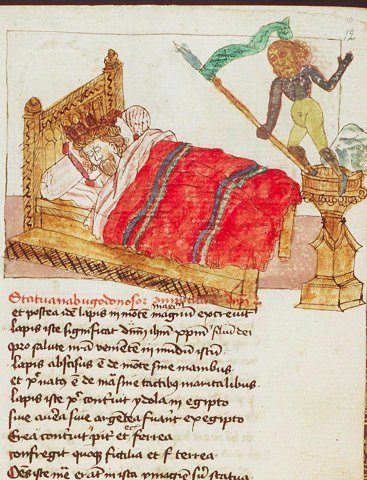 12
Statua nabugodonosor
et postea idē lapis in mōtē magnū excreuit
lapis iste significat dīm ihm xpm filiū dei
qui pro salute venit in mūdum istū
lapis abscisus ē de mōte sine manibus
et xp̄ nat9 ē de mā sine tactibus maritalibus
lapis iste xp̄ cōtriuit ydola in egipto
siue aurea siue argētea fuerūt ex egipto
Erea cōtriuit pit et ferrea
confregit quoque fictilia et terrea
Oēs iste mē erāt in ista ymagine siue statua